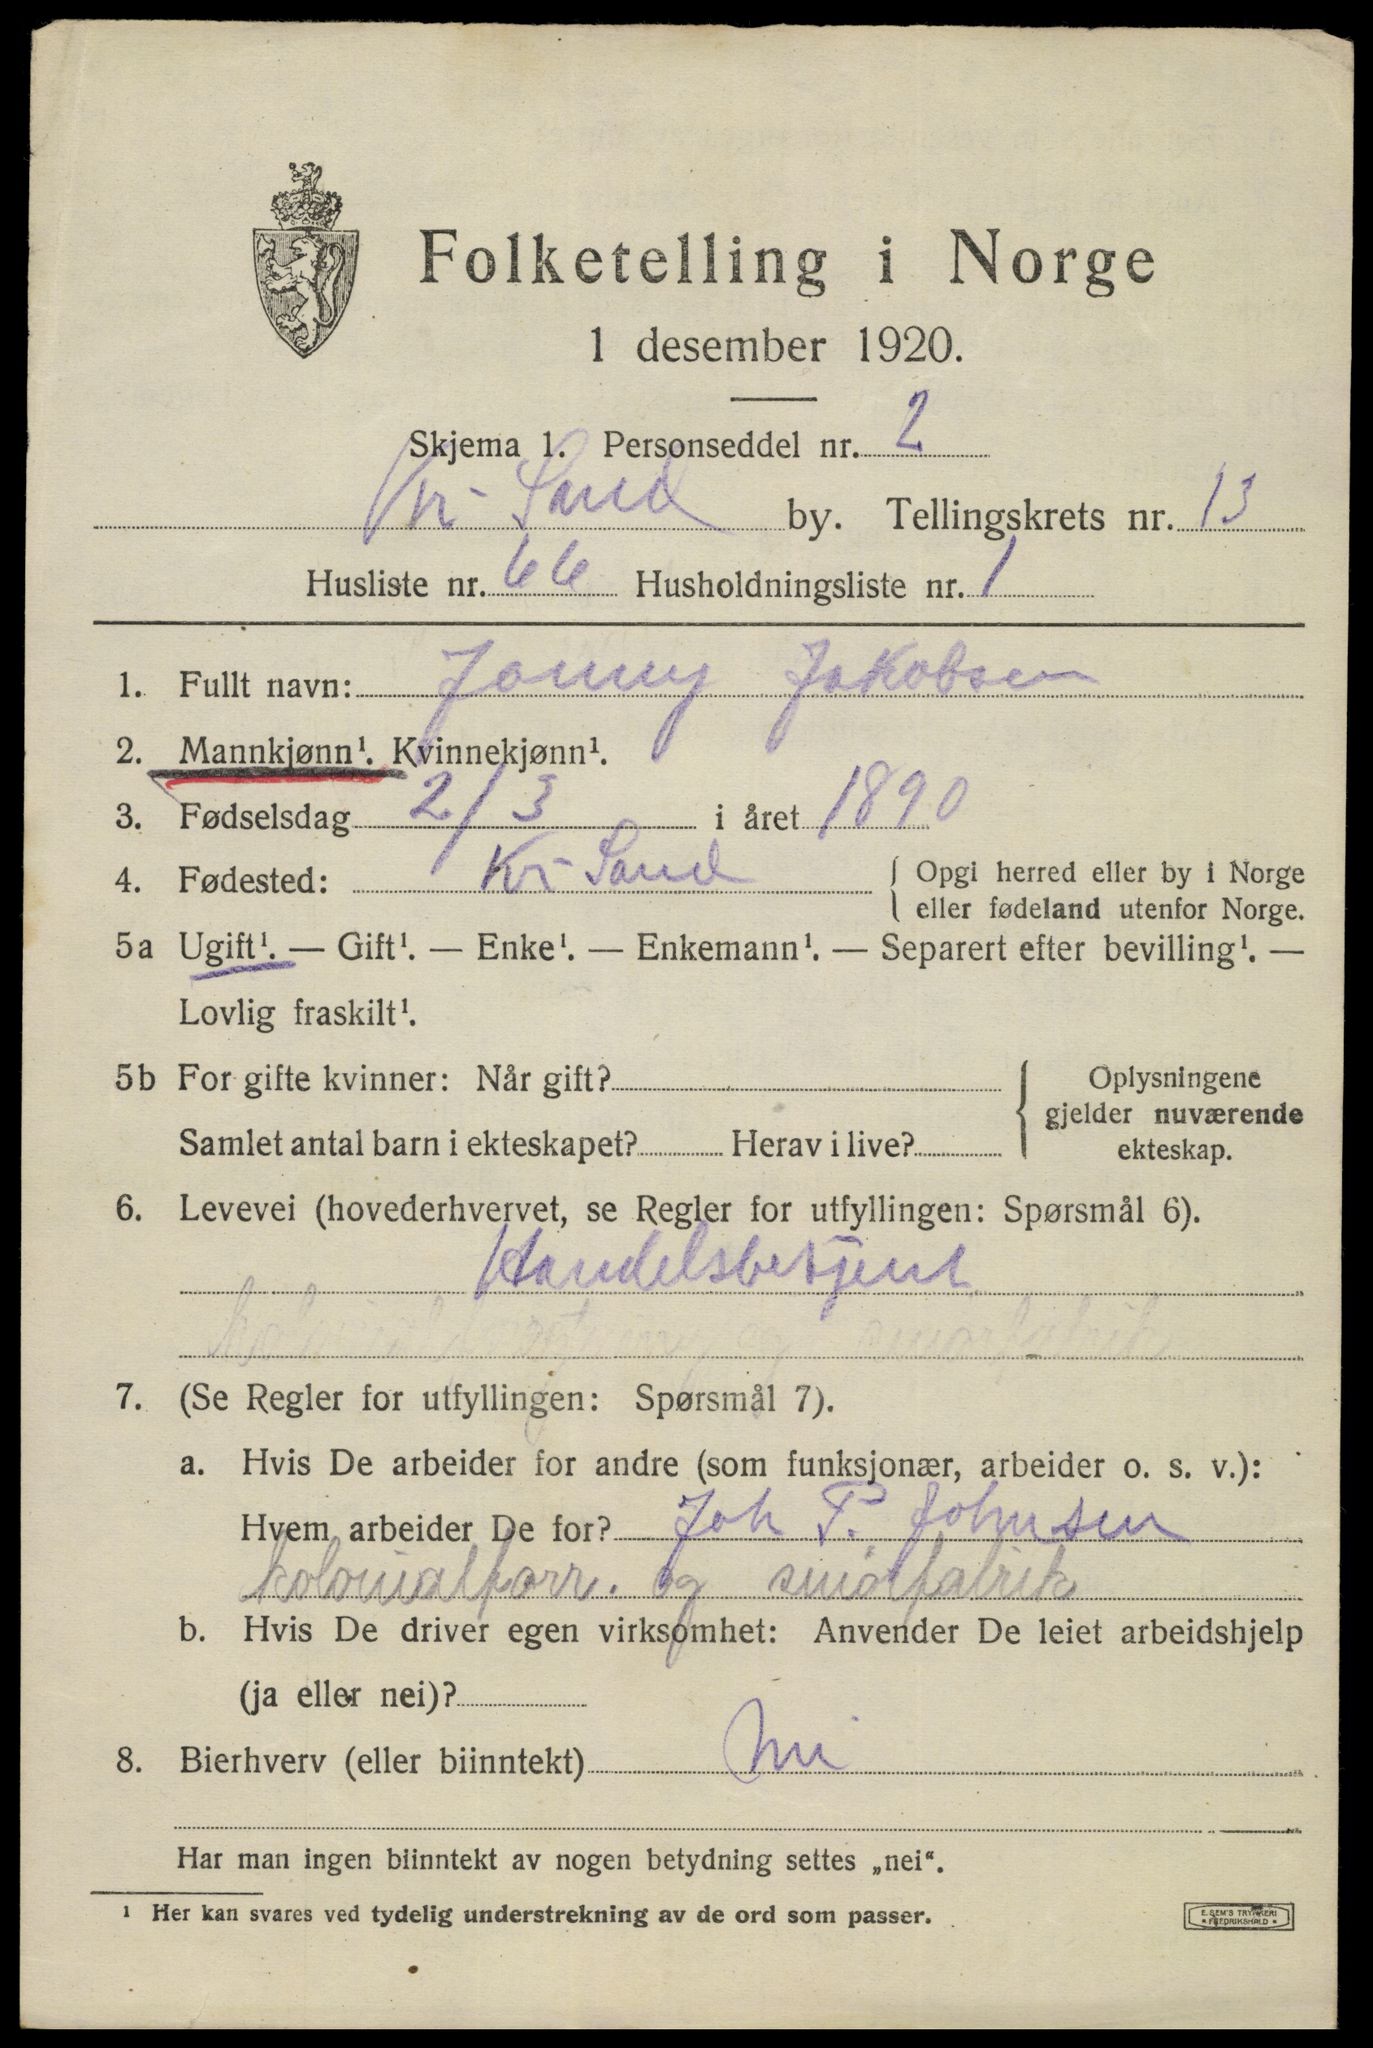 Folketelling i Norge
1 desember 1920.
Skjema 1. Personseddel nr. 2
Kr-Sand by. Tellingskrets nr. 13
Husliste nr. 66 Husholdningsliste nr. 1
1. Fullt navn: Jonny Jakobsen
2. Mannkjønn¹. Kvinnekjønn¹.
3. Fødselsdag 2/3 i året 1890
4. Fødested: Kr-Sand { Opgi herred eller by i Norge
eller fødeland utenfor Norge.
5a Ugift¹. — Gift¹. — Enke¹. — Enkemann¹. — Separert efter bevilling¹. —
Lovlig fraskilt¹.
5b For gifte kvinner: Når gift?
Samlet antal barn i ekteskapet? Herav i live?
Oplysningene
gjelder nuværende
ekteskap.
6. Levevei (hovederhvervet, se Regler for utfyllingen: Spørsmål 6).
Handelsbetjent
og smørfabrik
7. (Se Regler for utfyllingen: Spørsmål 7).
a. Hvis De arbeider for andre (som funksjonær, arbeider o. s. v.):
Hvem arbeider De for? Joh P. Johnsen
kolonialforr. og smørfabrik
b. Hvis De driver egen virksomhet: Anvender De leiet arbeidshjelp
(ja eller nei)?
8. Bierhverv (eller biinntekt) nei
Har man ingen biinntekt av nogen betydning settes „nei“.
¹ Her kan svares ved tydelig understrekning av de ord som passer.
E. SEM'S TRYKKERI
FREDRIKSHALD